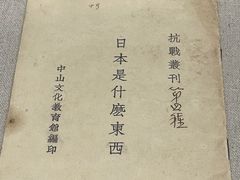 抗戰叢刊第四種
日本是什麽東西
中山文化教育館編印